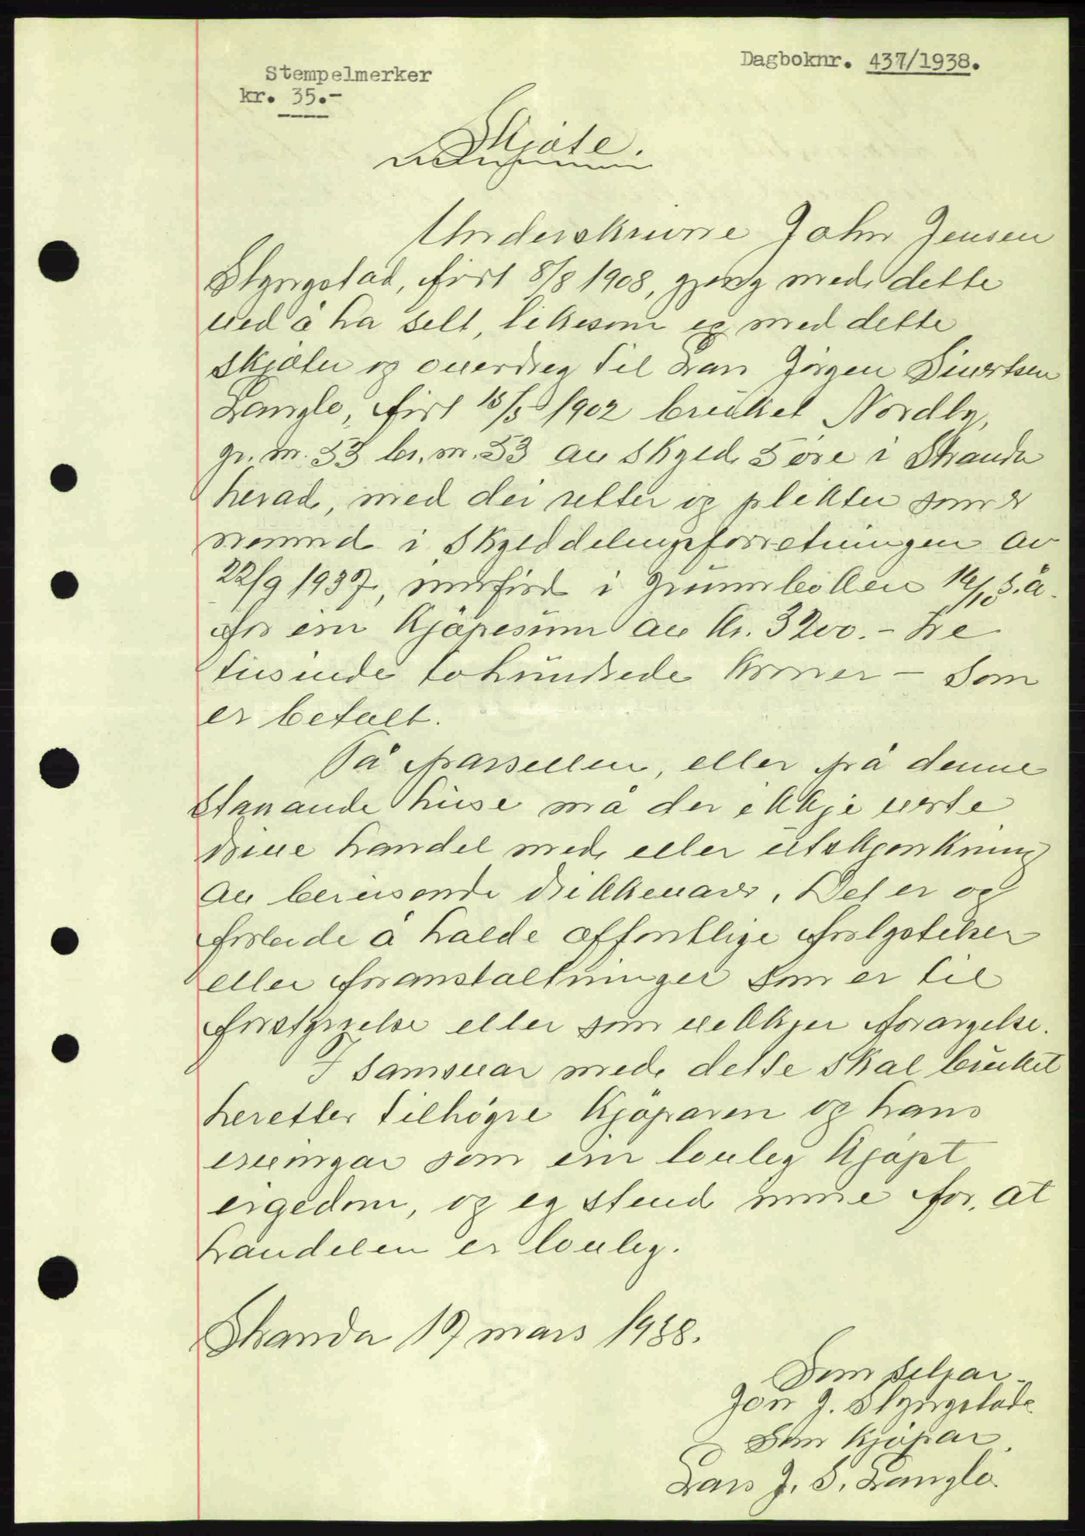 Stempelmerker
kr. 35.-
Dagboknr. 437/1938.
Skjøte.
Underskrivne John Jensen
Styngstad, født 8/8 1908, gjeng med dette
ved å ha selt, likesom eg med dette
skjøter og overdreg til Lars Jørgen Sivertsen
Langlo, født 15/5 1902 bruket Nordly,
gr. nr. 53 br. nr. 53 av skyld 5 øre i Stranda
herad, med dei retter og plikter som er
nemnd i skylddelingsforretningen av
22/9 1937, innførd i grunnboken 14/10 s.å.
for ein kjøpesum av kr. 3200.- tre
tusinde tohundrede kroner - som
er betalt.
På parsellen, eller på denne
stanande huse må der ikkje verte
drive handel med eller utskjenkning
av berusende drikkevarer. Det er og
forbude å halde offentlige forlystelser
eller foranstaltninger som er til
forstyrrelse eller som vekkjer forargelse.
I samsvar med dette skal bruket
heretter tilhøyre kjøparen og hans
ervingar som ein lovleg kjøpt
eigedom, og eg stend inne for, at
handelen er lovleg.
Stranda 19 mars 1938.
Som seljar.
Jon J. Styngstad
Som kjøpar.
Lars J. S. Langlo.